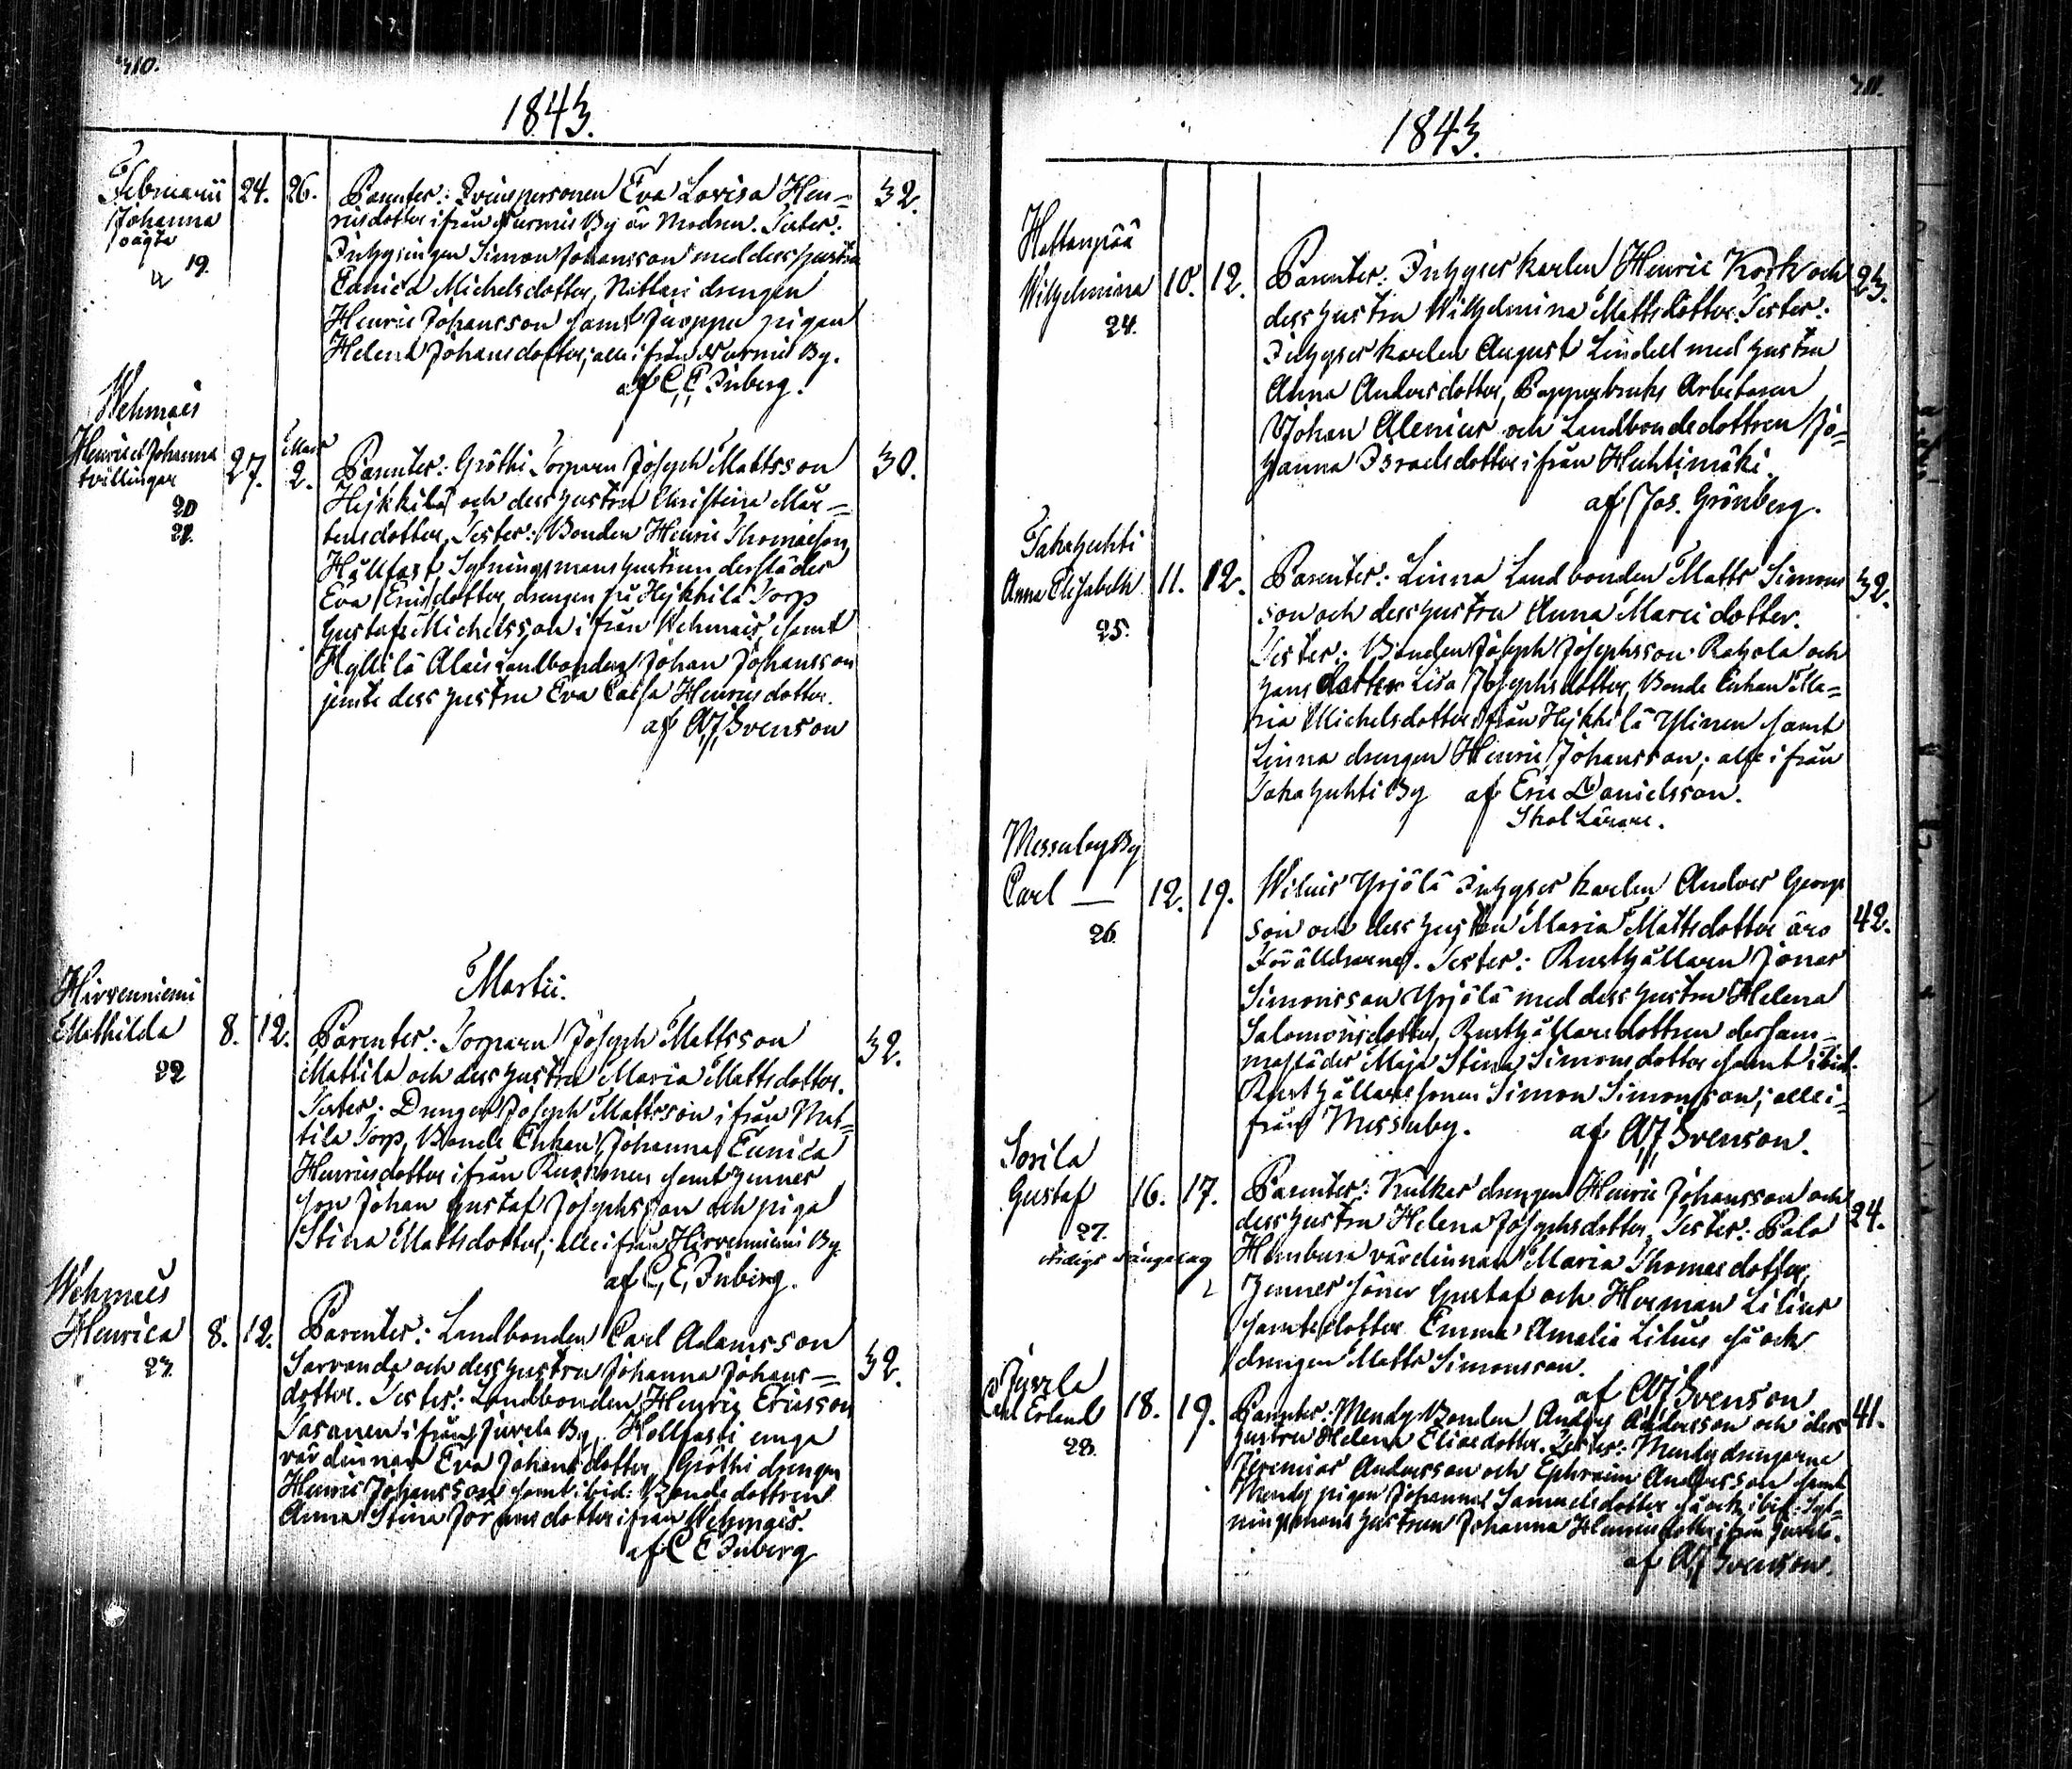 310.
1843.
Februarii 24. 26. Parenter: Qvinspersonen Eva Lovisa Hen= 32.
Johanna
oägta
u 19.
ricsdotter ifrån Nurmis By är Modren. Tester:
Inhysingen Simon Johansson med dess hustru
Eunica Michelsdotter, Nattari drengen
Henric Johansson samt Juoppu pigan
Helena Johansdotter; alle ifrån Nurmis By.
af C. E. Inberg.
Wehmais
Henric et Johanna 27. Mars 2. Parenter: Gröthi Torparn Joseph Mattsson 30.
tvillingar
20
21.
Hejkkilä och dess hustru Christina Mår=
tensdotter, Tester: Bonden Henric Thomasson
Hållfast Sytningsmans hustrun derstädes
Eva Ericsdotter, drengen på Hejkkilä Torp
Gustaf Michelsson ifrån Wehmais, samt
Hyllilä Alais Landbonden Johan Johansson
jemte dess hustru Eva Caisa Henricsdotter.
af A. J. Svenson
Martii.
Hirvenniemi
Mathilda 8. 12. Parenter: Torparn Joseph Mattsson 32.
22
Mattila och dess hustru Maria Mattsdotter.
Tester: Drengen Joseph Mattsson ifrån Mat=
tila Torp, Bonde Enkan Johanna Eunica
Henricsdotter ifrån samt hennes
son Johan Gustaf Josephsson och piga
Stina Mattsdotter; alle ifrån Hirvenniemi By.
af C. E. Inberg.
Wehmais
Henrica 8. 12. Parenter: Landbonden Carl Adamsson 32.
23.
Sarvanda och dess hustru Johanna Johans=
dotter. Tester: Landbonden Henric Ericsson
Tasanen ifrån Juvela By, Hollfasti unga
värdinnan Eva Johansdotter, Gröthi drengen
Henric Johansson samt ibid: Bonde dottren
Anna Stina Joransdotter ifrån Wehmais.
af C E Inberg
311.
1843.
Hattanpää
Wilhelmina 10. 12. Parenter: Inhyses karlen Henric Kork och 23.
24.
dess hustru Wilhelmina Mattsdotter. Tester:
Inhyses karlen August Lindell med hustru
Anna Andersdotter, Pappersbruks Arbetaren
Johan Alenius och Landbondedottren Jo=
hanna Israelsdotter ifrån Huhtimäki.
af Jos. Grönberg.
Takahuhti
Anna Elisabeth 11. 12. Parenter: Linna Landbonden Matts Simons 32.
25.
son och dess hustru Anna Marcidotter.
Tester: Bonden Joseph Josephsson Rahola och
hans dotter Lisa Josephsdotter, Bonde Enkan Ma=
ria Michelsdotter ifrån Hejkkilä Ylinen samt
Linna drengen Henric Johansson; alle ifrån
Takahuhti By af Eric Danielsson.
Skol Lärare.
Messuby By
Carl — 12. 19. Wiluis Yrjölä Inhyses karlen Anders Georgs 42.
26
son och dess hustru Maria Mattsdotter äro
Föräldrarne. Tester: Rusthållarn Jonas
Simonsson Yrjölä med dess hustru Helena
Salomonsdotter, Rusthållaredottren dersam=
mastädes Maja Stina Simonsdotter samt ibid.
Rusthållare sonen Simon Simonsson; alle i=
från Messuby. af A. J. Svenson.
Sorila
Gustaf 16. 17. Parenter: Kulkas drengen Henric Johansson och 24.
27.
dess hustru Helena Josephsdotter, Tester: Palo
Hambura värdinnan Maria Thomasdotter,
hennes söner Gustaf och Herman Lilius
samt dotter Emma Amalia Lilius så ock
drengen Matts Simonsson.
af A. J. Svenson
Juvela
Carl Erland 18. 19. Parenter: Mendy Bonden Anders Andersson och dess 41.
28.
hustru Helena Eliaedotter. Tester: Mendy drengarne
Jeremias Andersson och Ephraim Andersson samt
Mendy pigan Johanna Samuelsdotter så ock ibid: Syt=
ningsmans hustrun Johanna Henricsdotter ifrån Juvela.
af A. J Svenson.